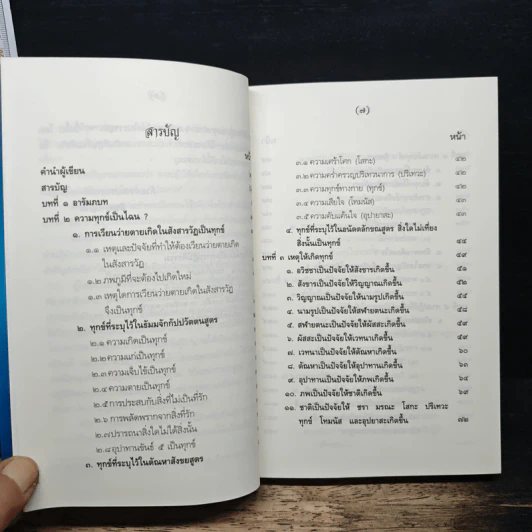 สารบัญ
คำนำผู้เขียน
สารบัญ
บทที่ ๑ อารัมภบท
บทที่ ๒ ความทุกข์เป็นไฉน ?
๑. การเวียนว่ายตายเกิดในสังสารวัฏเป็นทุกข์
๑.๑ เหตุและปัจจัยที่ทำให้ต้องเวียนว่ายตายเกิด
ในสังสารวัฏ
๑.๒ ภพภูมิที่จะต้องไปเกิดใหม่
๑.๓ เหตุใดการเวียนว่ายตายเกิดในสังสารวัฏ
จึงเป็นทุกข์
๒. ทุกข์ที่ระบุไว้ในธัมมจักกัปปวัตตนสูตร
๒.๑ ความเกิดเป็นทุกข์
๒.๒ ความแก่เป็นทุกข์
๒.๓ ความเจ็บไข้เป็นทุกข์
๒.๔ ความตายเป็นทุกข์
๒.๕ การประสบกับสิ่งที่ไม่เป็นที่รัก
๒.๖ การพลัดพรากจากสิ่งที่รัก
๒.๗ ปรารถนาสิ่งใดไม่ได้สิ่งนั้น
๒.๘ อุปาทานขันธ์ ๕ เป็นทุกข์
๓. ทุกข์ที่ระบุไว้ในตัณหาสังขยสูตร
(๗)
หน้า
๓.๑ ความเศร้าโศก (โสกะ) ๔๒
๓.๒ ความคร่ำครวญปริเทวนาการ (ปริเทวะ) ๔๒
๓.๓ ความทุกข์ทางกาย (ทุกข์) ๔๒
๓.๔ ความเสียใจ (โทมนัส) ๔๒
๓.๕ ความคับแค้นใจ (อุปายาสะ) ๔๒
๔. ทุกข์ที่ระบุไว้ในอนัตตลักขณสูตร สิ่งใดไม่เที่ยง
สิ่งนั้นเป็นทุกข์ ๔๔
บทที่ ๓ เหตุให้เกิดทุกข์ ๔๙
๑. อวิชชาเป็นปัจจัยให้สังขารเกิดขึ้น ๕๑
๒. สังขารเป็นปัจจัยให้วิญญาณเกิดขึ้น ๕๒
๓. วิญญาณเป็นปัจจัยให้นามรูปเกิดขึ้น ๕๕
๔. นามรูปเป็นปัจจัยให้สฬายตนะเกิดขึ้น ๕๘
๕. สฬายตนะเป็นปัจจัยให้ผัสสะเกิดขึ้น ๕๙
๖. ผัสสะเป็นปัจจัยให้เวทนาเกิดขึ้น ๕๙
๗. เวทนาเป็นปัจจัยให้ตัณหาเกิดขึ้น ๖๐
๘. ตัณหาเป็นปัจจัยให้อุปาทานเกิดขึ้น ๖๓
๙. อุปาทานเป็นปัจจัยให้ภพเกิดขึ้น ๖๔
๑๐. ภพเป็นปัจจัยให้ชาติเกิดขึ้น ๖๙
๑๑. ชาติเป็นปัจจัยให้ ชรา มรณะ โสกะ ปริเทวะ
ทุกข์ โทมนัส และอุปายาสะเกิดขึ้น ๗๒